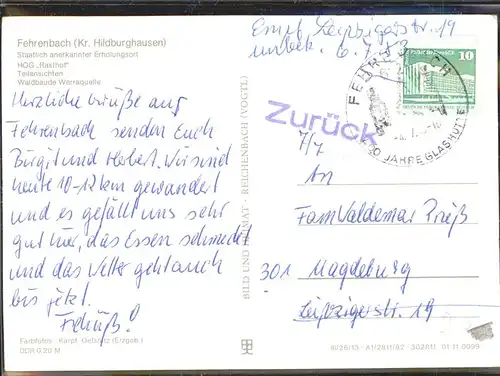 Fehrenbach (Kr. Hildburghausen)
Staatlich anerkannter Erholungsort
HOG „Rasthof"
Teilansichten
Waldbaude Werraquelle
Herzliche Grüße aus
Fehrenbach senden Euch
Birgit und Herbert. Wir sind
heute 10-12 km gewandert
und es gefällt uns sehr
gut hier, das Essen schmeckt
und das Wetter geht auch
bis jetzt.
Tschüß!
Farbfotos: Karpf, Oelsnitz (Erzgeb.)
DDR 0,20 M
BILD UND HEIMAT · REICHENBACH (VOGTL)
Empf. Leipzigerstr. 19
unbek. 6.7.83
FEHRENBACH
JAHRE GLASHÜTTE
10
Zurück
7/7
An
Fam Waldemar Prieß
301 Magdeburg
Leipzigerstr. 19
A1/2811/82 302811 01 11 0099